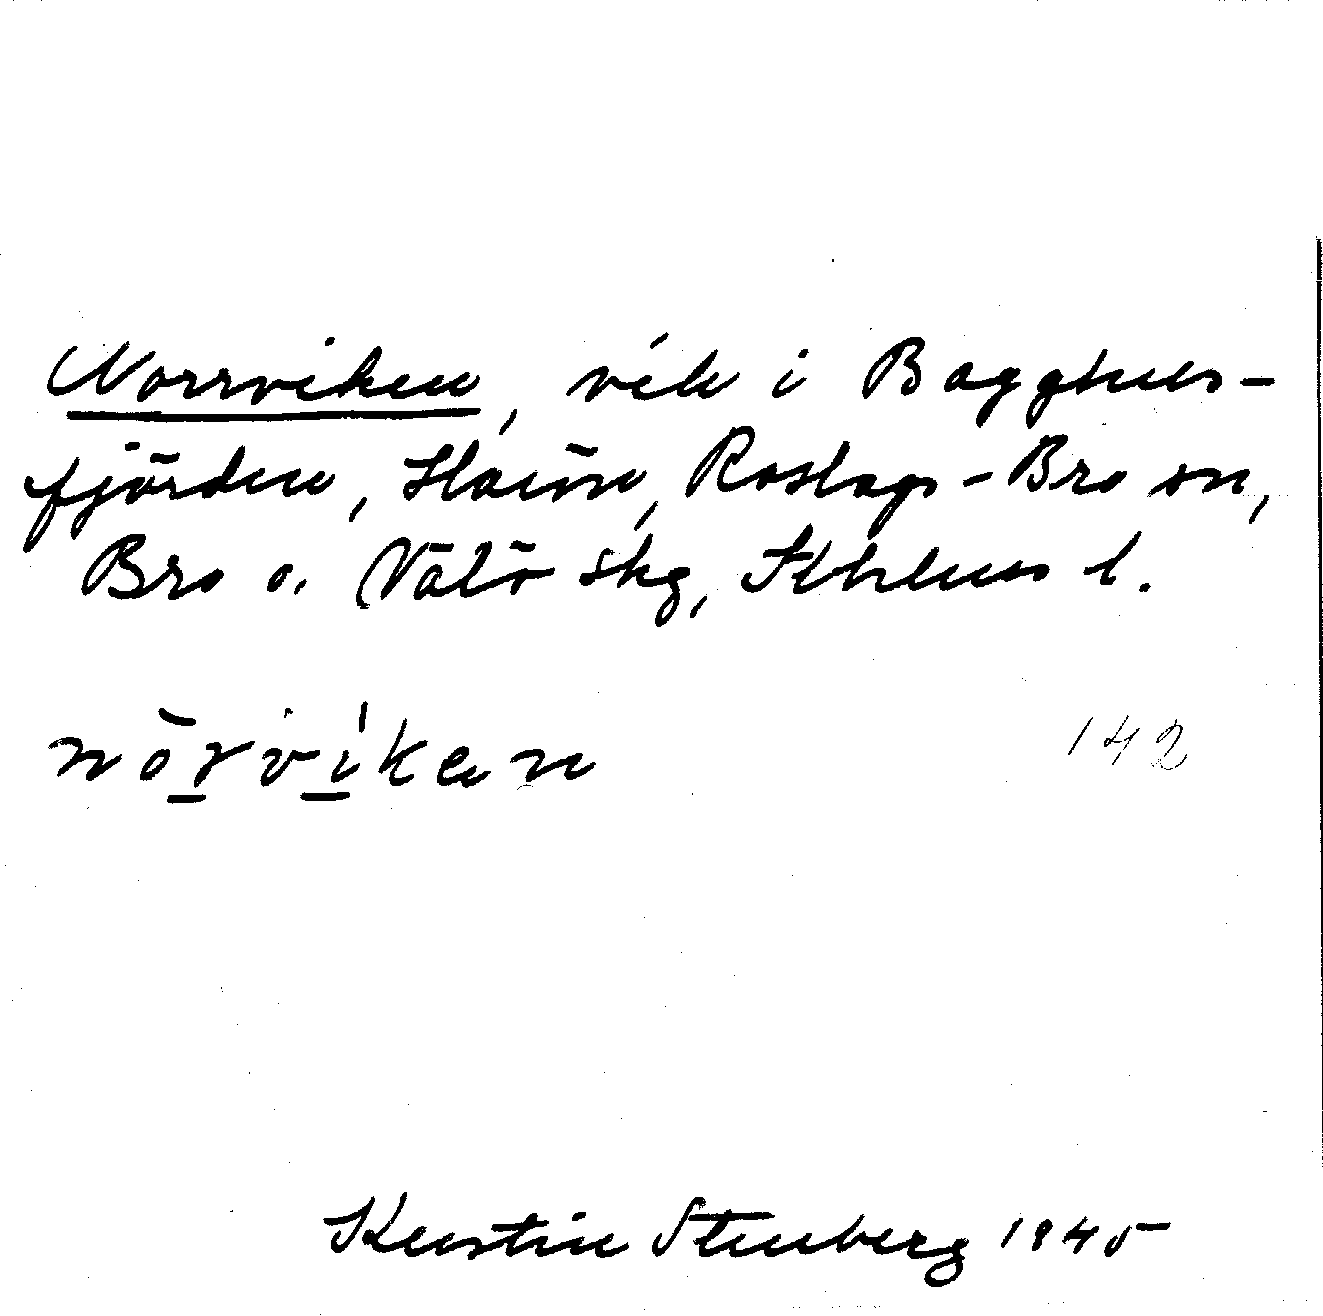 Norrviken, vik i Bagghus-
fjärden, Roslags-Bro sn,
Bro o. Vätö skg, Sthlms l.
nörvikan 142
Kerstin Stenberg 1945